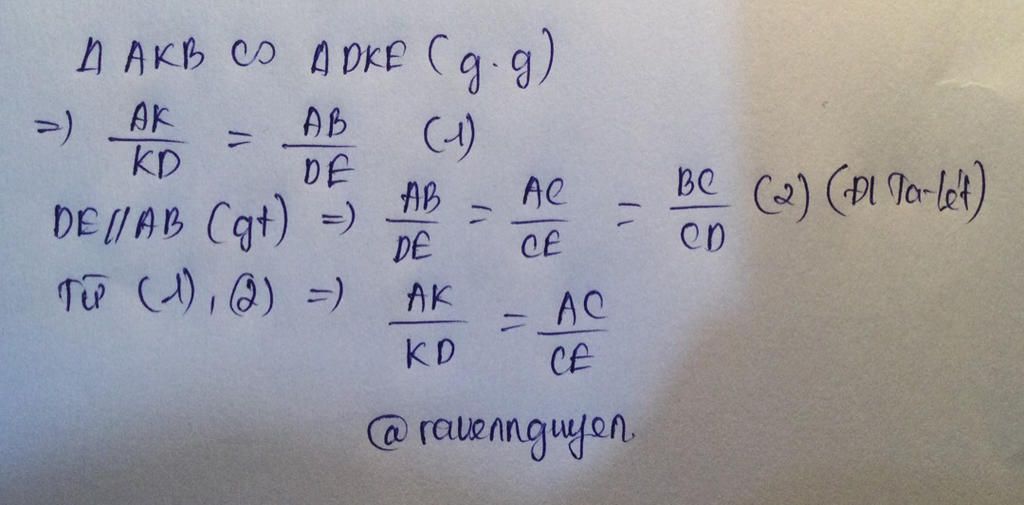 Δ AKB ∽ Δ DKE (g.g)
=) AK/KD = AB/DE (1)
DE//AB (gt) =) AB/DE = AC/CE = BC/CD (2) (Đl Ta-lét)
Từ (1), (2) =) AK/KD = AC/CE
@ravennguyen